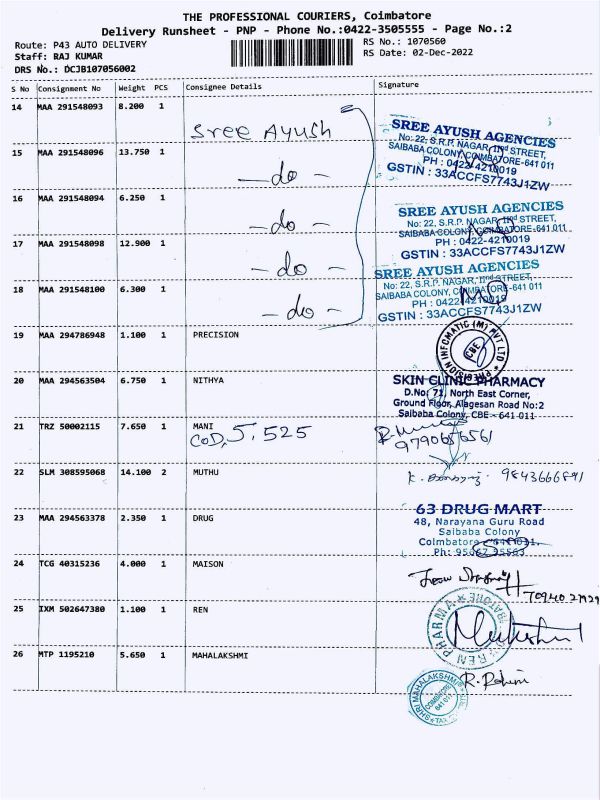 THE PROFESSIONAL COURIERS, Coimbatore
Delivery Runsheet - PNP - Phone No.:0422-3505555 - Page No.:2
Route: P43 AUTO DELIVERY
RS No.: 1070560
Staff: RAJ KUMAR
RS Date: 02-Dec-2022
DRS No.: DCJB107056002
S No Consignment No Weight PCS Consignee Details Signature
14 MAA 291548093 8.200 1
Sree Ayush
SREE AYUSH AGENCIES
No: 22, S.R.P. NAGAR, IInd STREET,
SAIBABA COLONY, COIMBATORE-641 011
PH : 0422-4210019
GSTIN : 33ACCFS7743J1ZW
15 MAA 291548096 13.750 1
- do -
16 MAA 291548094 6.250 1
- do -
SREE AYUSH AGENCIES
No: 22, S.R.P. NAGAR, IInd STREET,
SAIBABA COLONY, COIMBATORE-641 011
PH : 0422-4210019
GSTIN : 33ACCFS7743J1ZW
17 MAA 291548098 12.900 1
- do -
SREE AYUSH AGENCIES
No: 22, S.R.P. NAGAR, IInd STREET,
SAIBABA COLONY, COIMBATORE-641 011
PH : 0422-4210019
GSTIN : 33ACCFS7743J1ZW
18 MAA 291548100 6.300 1
- do -
19 MAA 294786948 1.100 1 PRECISION
PRECISION INFOMATIC (M) PVT LTD
CBE
20 MAA 294563504 6.750 1 NITHYA
SKIN CLINIC PHARMACY
D.No: 71, North East Corner,
Ground Floor, Alagesan Road No:2
Saibaba Colony, CBE - 641 011
21 TRZ 50002115 7.650 1 MANI
COD, 5,525
9790656561
22 SLM 308595068 14.100 2 MUTHU
9843666891
23 MAA 294563378 2.350 1 DRUG
63 DRUG MART
48, Narayana Guru Road
Saibaba Colony
Coimbatore - 641 011.
Ph: 95667 95563
24 TCG 40315236 4.000 1 MAISON
25 IXM 502647380 1.100 1 REN
REN PHARMA
26 MTP 1195210 5.650 1 MAHALAKSHMI
R. Rohini
SHRI MAHALAKSHMI
COIMBATORE
641 011